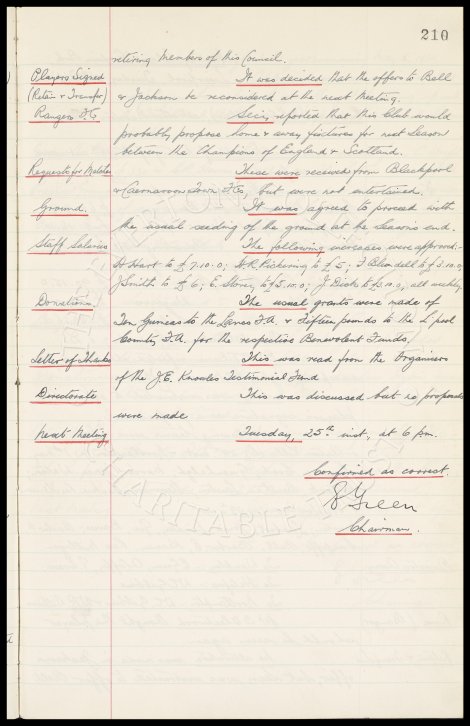 210
retiring Members of this Council.
Players Signed It was decided that the offers to Bell
(Retain & Transfer) & Jackson be reconsidered at the next Meeting.
Rangers F.C Secy. reported that this Club would
probably propose home & away fixtures for next season
between the Champions of England & Scotland.
Requests for Matches These were received from Blackpool
& Caernarvon Town F.Cs, but were not entertained.
Ground. It was agreed to proceed with
the usual seeding of the ground at the season's end.
Staff Salaries The following increases were approved:-
H Hart to £7.10.0; H.R. Pickering to £5; T. Blundell to £3.10.0;
J. Smith to £6; E. Storey to £5.10.0; J. Dick to £5.10.0, all weekly.
Donations The usual grants were made of
Ten Guineas to the Lancs F.A. & Fifteen pounds to the L'pool
County F.A. for the respective Benevolent Funds.
Letter of Thanks This was read from the Organisers
of the J.E. Knowles Testimonial Fund
Directorate This was discussed but no proposals
were made
Next Meeting Tuesday, 25th inst, at 6 pm.
Confirmed as correct
Green
Chairman.
CHARITABLE